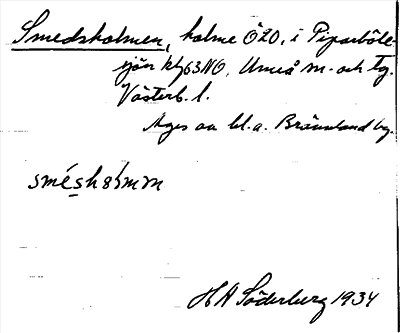 Smedsholmen, holme Ö20, i Piparböle-
sjön kbl 63 NO, Umeå sn. och tg.
Västerb. l.
Äges av bl.a. Brännland by.
smésholmm
H A Söderberg 1934